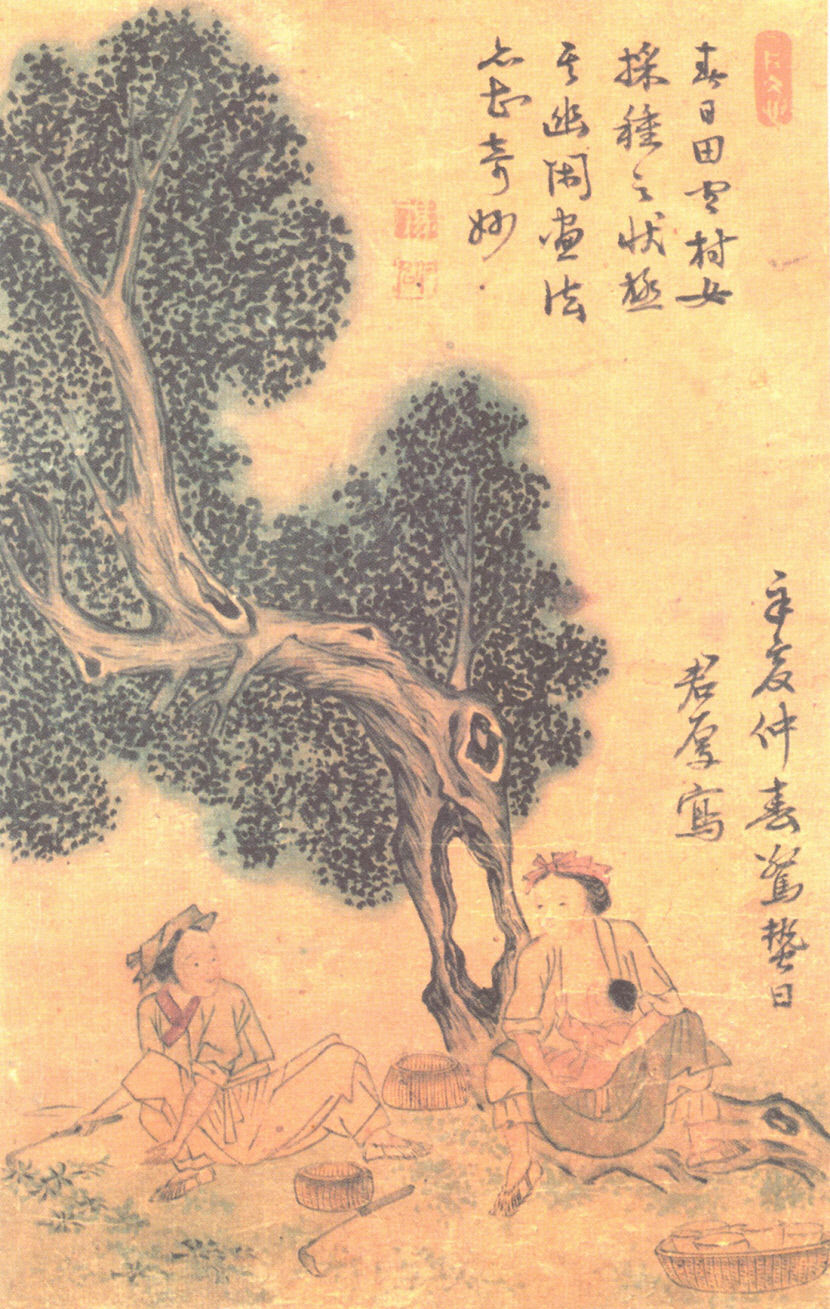 春日田村女
採種之狀極
其幽閑畫法
亦甚奇妙
辛亥仲春驚蟄日
君厚寫